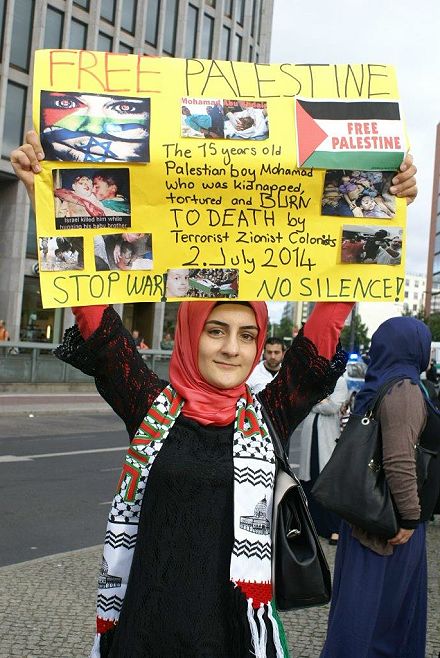 FREE PALESTINE
FREE
PALESTINE
The 15 years old
Palestian boy Mohamad
who was kidnapped,
tortured and BURN
TO DEATH by
Terrorist Zionist Colonists
2. July 2014
Israel killed him while
hugging his baby brother
STOP WAR!
NO SILENCE!